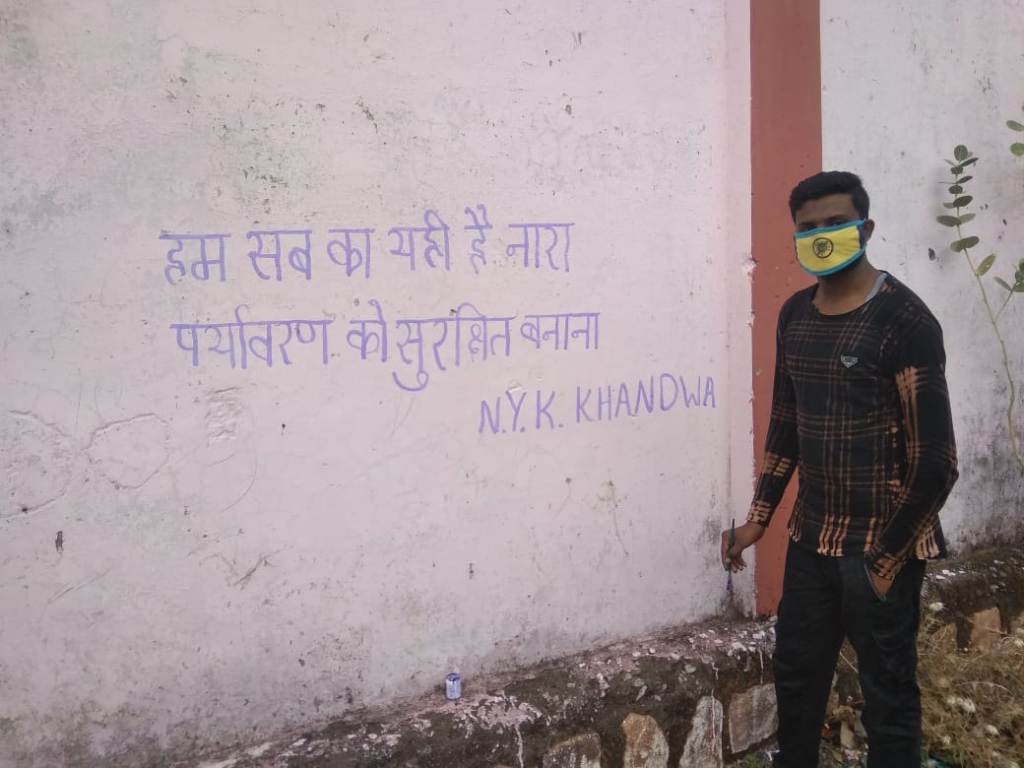 हम सब का यही है नारा
पर्यावरण को सुरक्षित बनाना
N.Y.K. KHANDWA